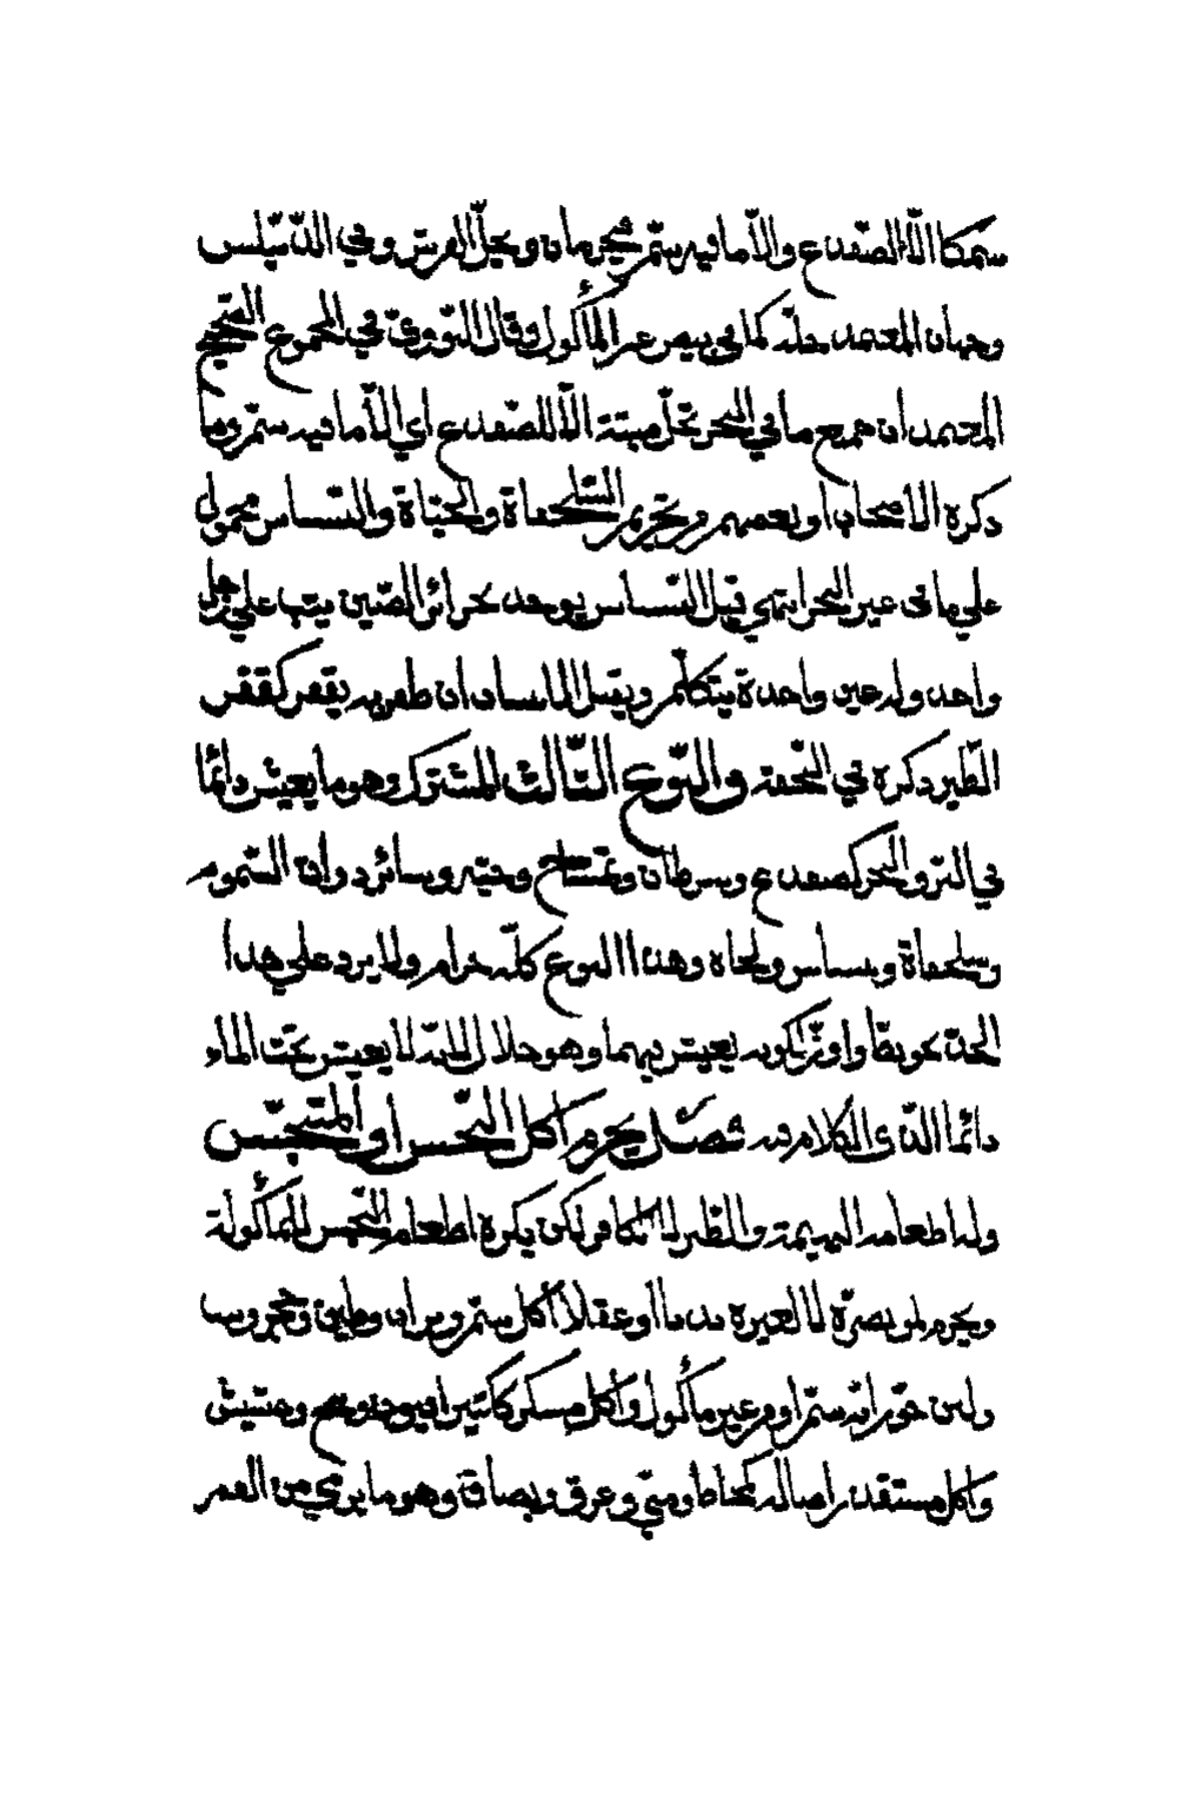 سمكا الّا الضّفدع والّا ما فيه سمّ فيحرمان ويحلّ القرش وفي الدّنيلس
وجهان المعتمد حلّه كما في بيض غير المأكول وقال النّووي في المجموع الصّحيح
المعتمد ان جميع ما في البحر تحلّ ميتته الّا الضّفدع اي الّا ما فيه سمّ وما
ذكره الأصحاب او بعضهم من تحريم السّلحفاة والحيّاة والنّسناس محمول
علي ما في غير البحر انتهي قيل النّسناس يوجد بجزائر الصّين يثب علي رجل
واحد وله عين واحدة يتكلّم ويقتل الانسان ان ظفر به يقفز كقفز
الطّير ذكره في التّحفة والنّوع الثّالث المشترك وهو ما يعيش دائما
في البرّ والبحر كضفدع وسرطان وتمساح وحيّة وسائر ذوات السّموم
وسلحفاة ونسناس ولجاه وهذا النوع كلّه حرام ولا يرد علي هذا
الحدّ نحو بطّ واوزّ لكونه يعيش فيهما وهو حلال لانّه لا يعيش تحت الماء
دائما الّذي الكلام فيه فصل يحرم اكل النّجس او المتنجّس
وله اطعامه البهيمة والطّير لا الكافر لكن يكره اطعام النّجس للمأكولة
ويحرم لمن يضرّه لا لغيره بدنا او عقلا اكل سمّ وتراب وطين وحجر ونبا
ولبن جوّز انّه سمّ او من غير مأكول واكل مسكر ككثير افيون وبنج وحشيش
واكل مستقذر اصالة كمخاط ومنيّ وعرق وبصاق وهو ما يرمي من الفم